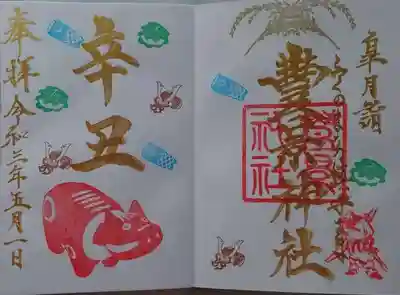 皐月詣
豊景神社
辛丑
奉拝 令和三年五月一日